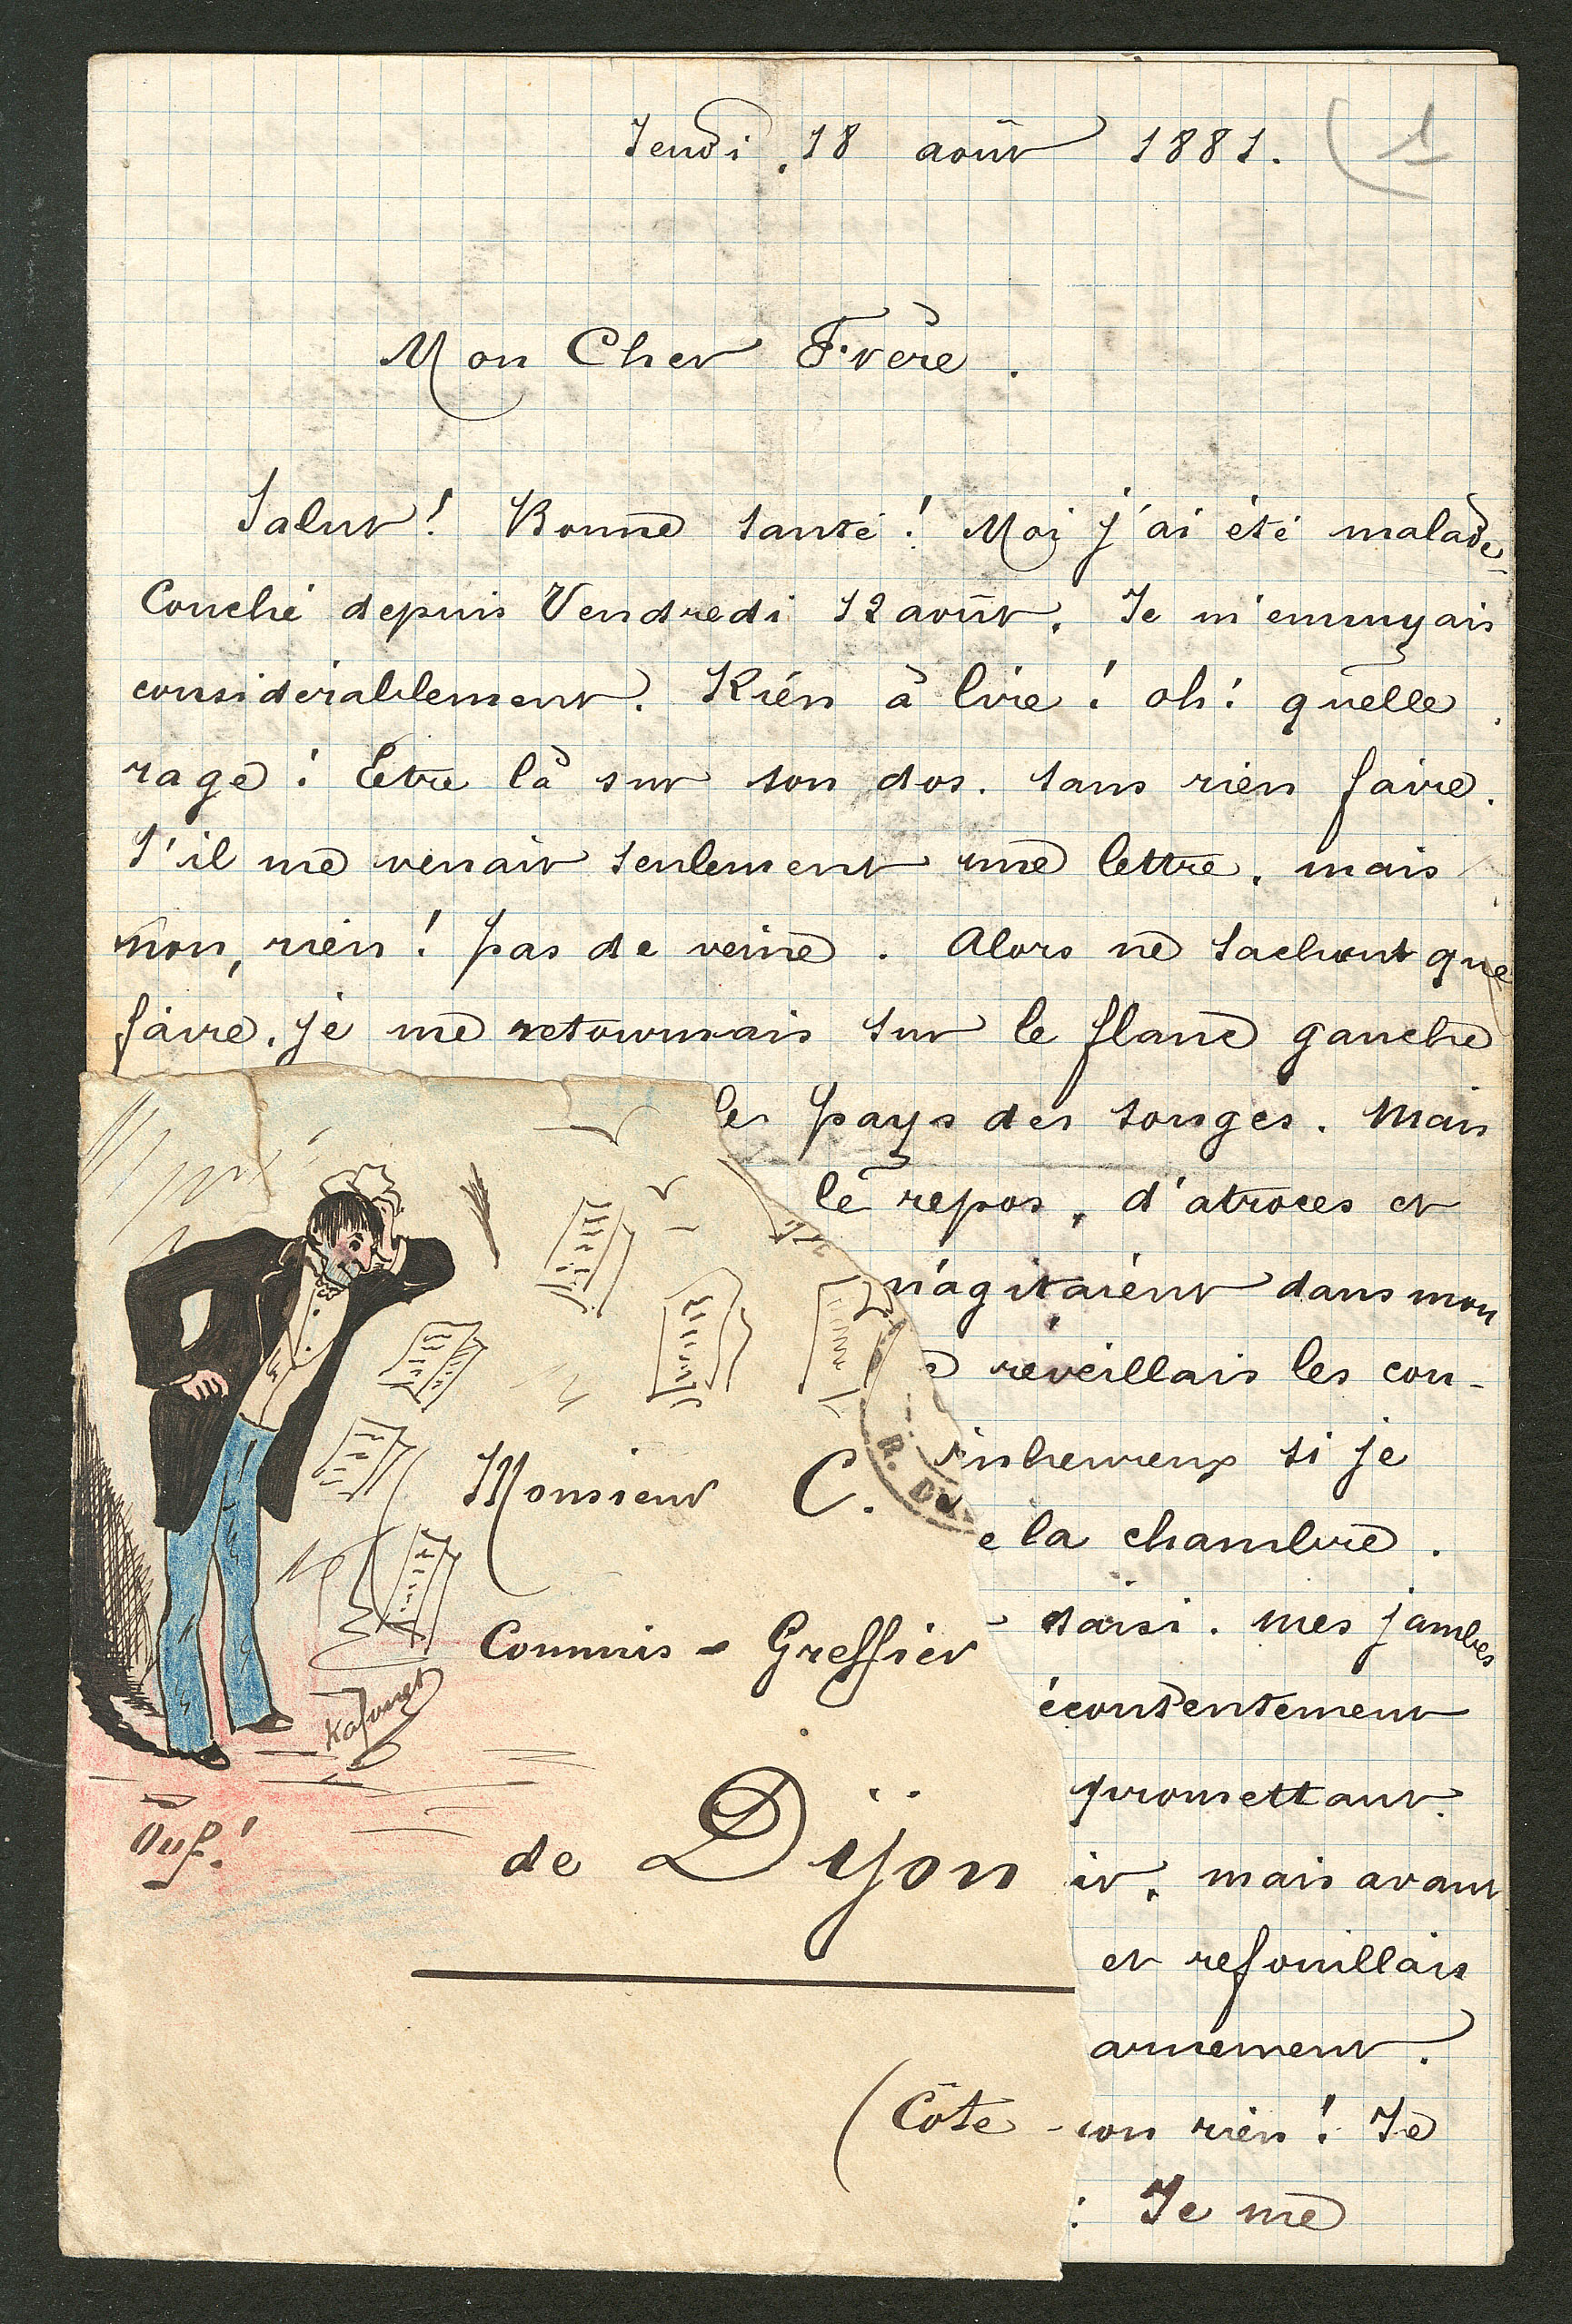 Jeudi, 18 août 1881.
(1
Mon Cher Frère.
Salut! Bonne santé! Moi j'ai été malade
Couché depuis Vendredi 12 août. Je m'ennuyais
considérablement. Rien à lire! oh! quelle
rage! Etre là sur son dos. sans rien faire.
S'il me venait seulement une lettre. mais
non, rien! pas de veine. Alors ne sachant que
faire. je me retournais sur le flanc gauche
les pays des songes. Mais
le repos, d'atroces et
m'agitaient dans mon
réveillais les cou-
si je
la chambre.
saisi. mes jambes
écontentement
promettant.
mais avant
et refouillais
arnement.
rien! Je
: Je me
Monsieur C.
Commis-Greffier
de Dijon
(Côte-
Ouf!
R. D